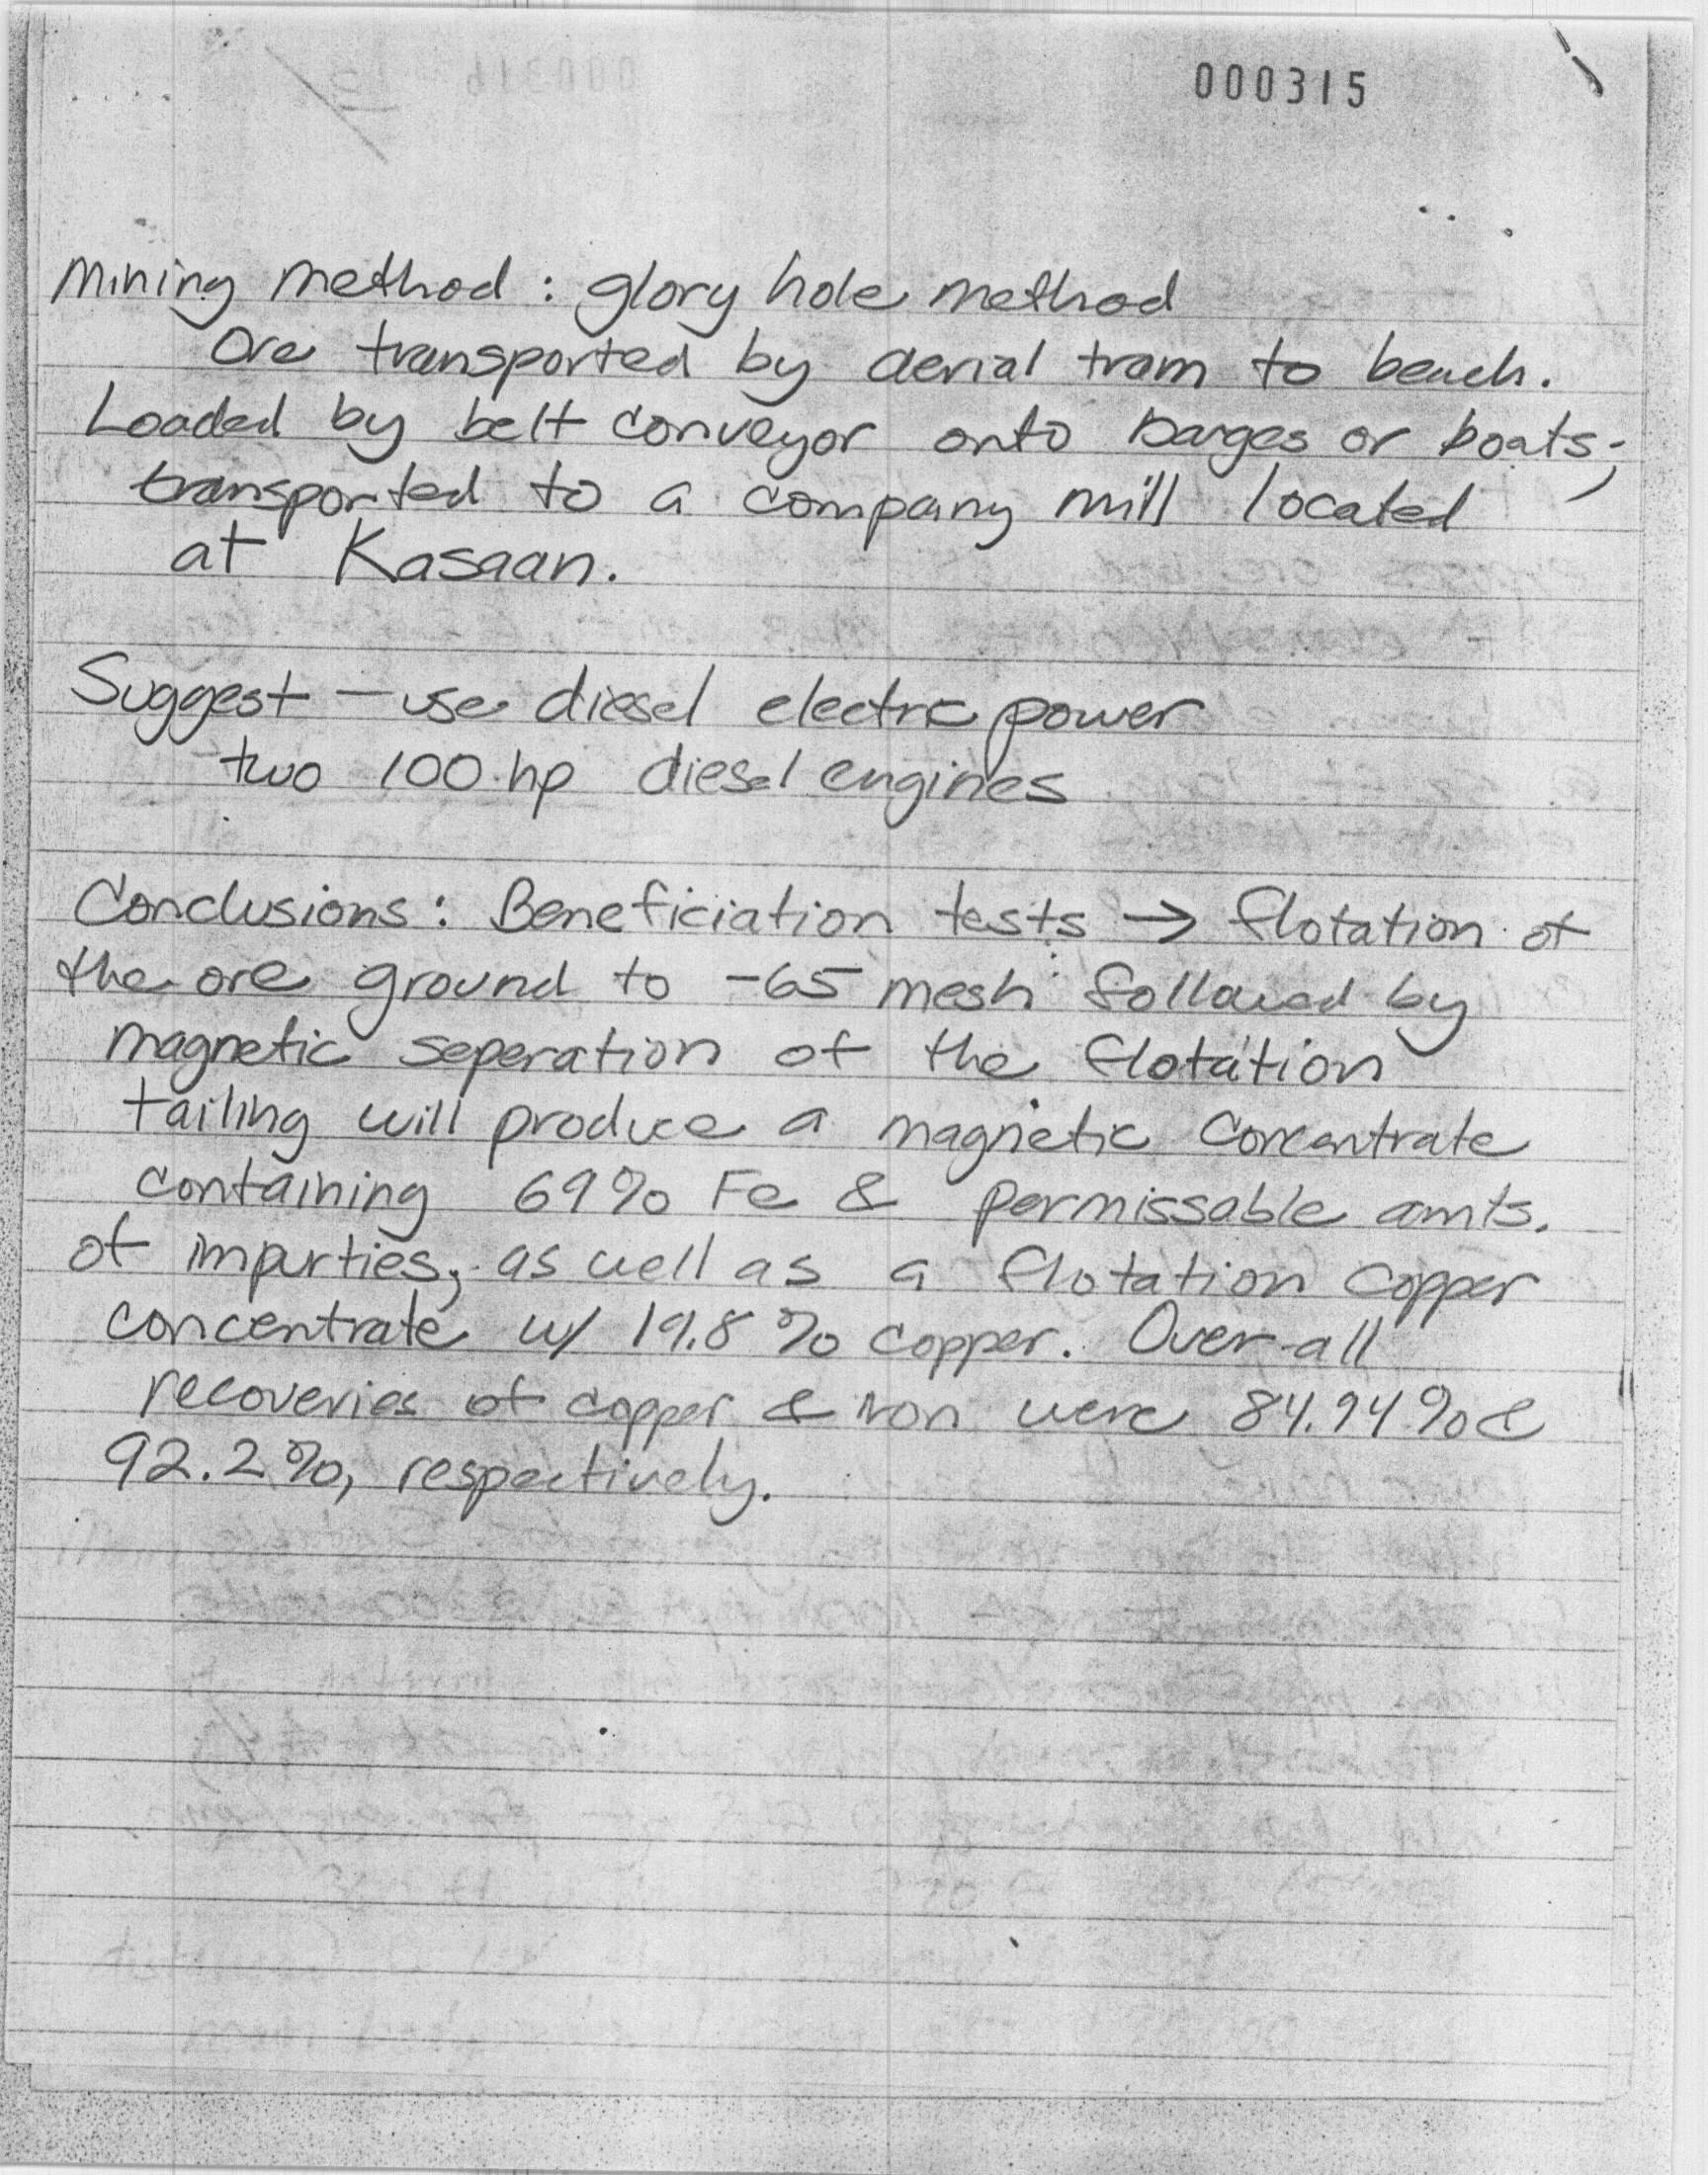 000315
Mining method : glory hole method
Ore transported by aerial tram to beach.
Loaded by belt conveyor onto barges or boats;
transported to a company mill located
at Kasaan.
Suggest - use diesel electric power
two 100 hp diesel engines
Conclusions : Beneficiation tests → flotation of
the ore ground to -65 mesh followed by
magnetic seperation of the flotation
tailing will produce a magnetic concentrate
containing 69% Fe & permissable amts.
of impurties, as well as a flotation copper
concentrate w/ 19.8 % copper. Over-all
recoveries of copper & iron were 84.94% &
92.2%, respectively.